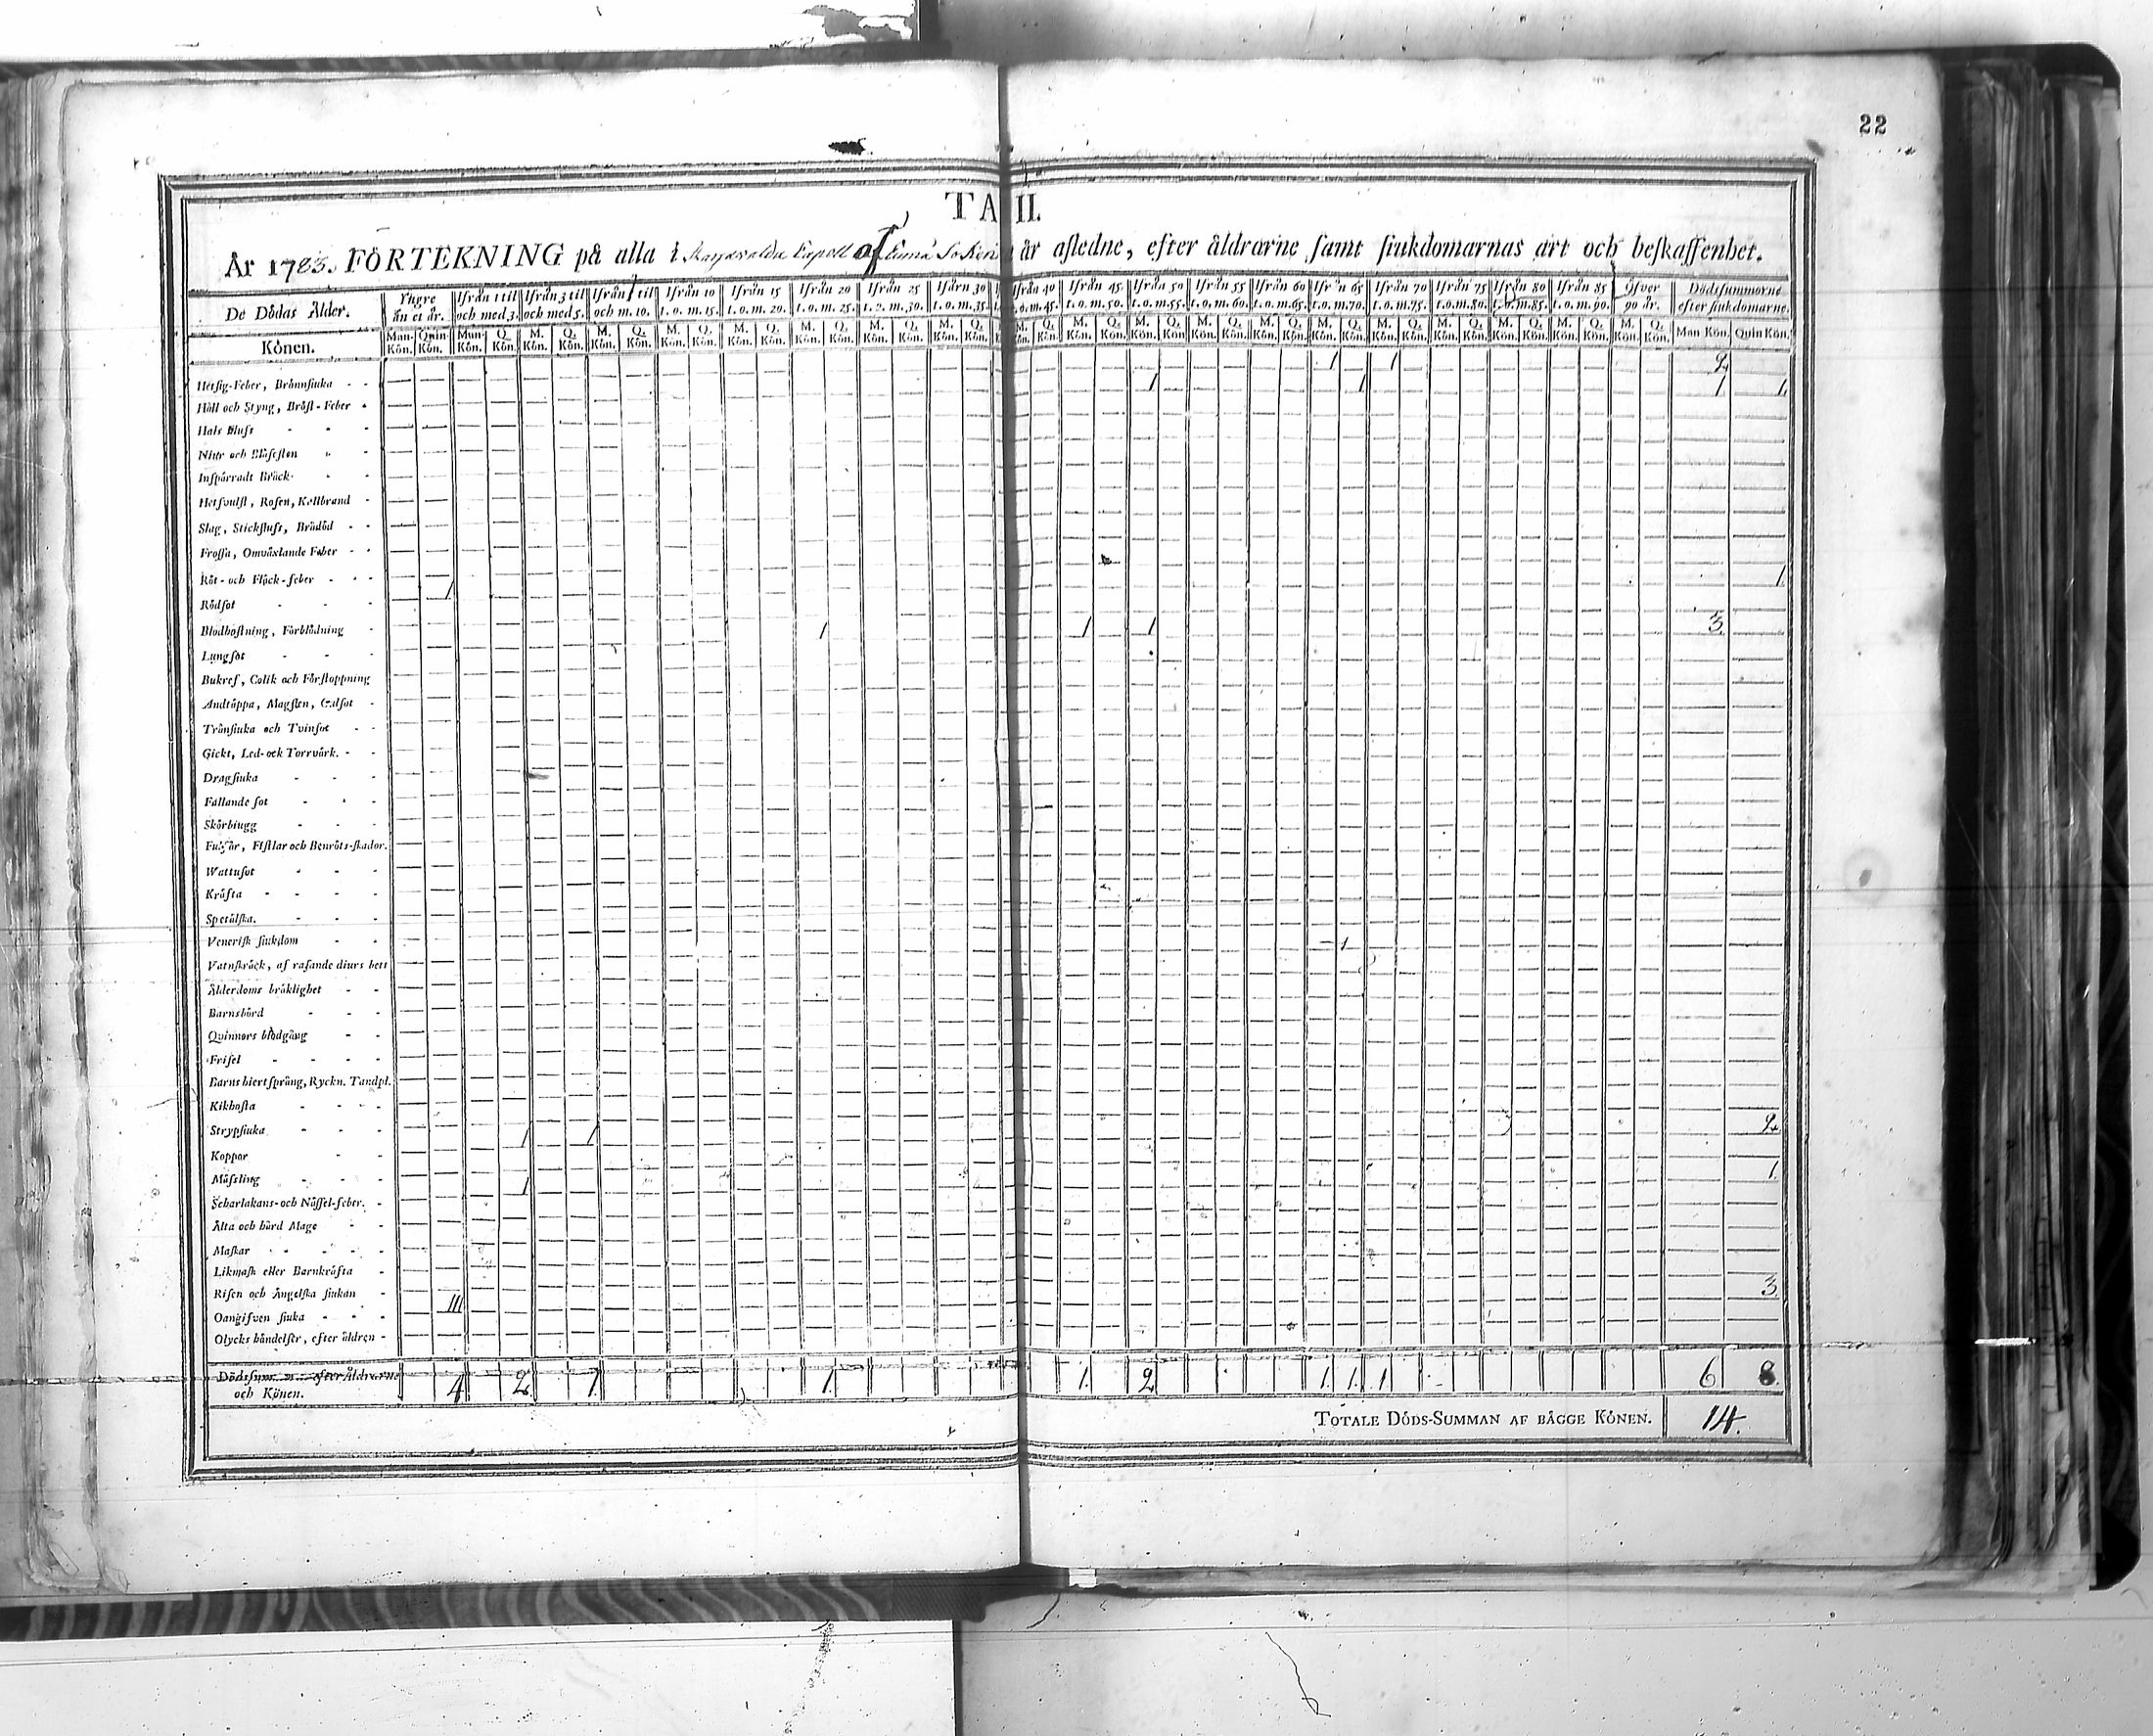 22
TA II.
År 1783. FÖRTEKNING på alla i Capell af Lumå Soken år afledne, efter åldrarne samt siukdomarnas art och beskaffenhet.
De Dödas Ålder. Yngre än et år. Ifrån 1 til och med 3. Ifrån 3 til och med 5. Ifrån til och m. 10. Ifrån 10 t. o. m. 15. Ifrån 15 t. o. m. 20. Ifrån 20 t. o. m. 25. Ifrån 25 t. o. m. 30. Ifårn 30 t. o. m. 35. Ifrån 40 t. o. m. 45. Ifrån 45 t. o. m. 50. Ifrån 50 t. o. m. 55. Ifrån 55 t. o. m. 60. Ifrån 60 t. o. m. 65. Ifr n 65 t. o. m. 70. Ifrån 70 t. o. m. 75. Ifrån 75 t. o. m. 80. Ifrån 80 t. o. m. 85. Ifrån 85 t. o. m. 90. Öfver 90 år. Dödssummorne efter siukdomarne.
Könen. Man-Kön. Quin-Kön. Man Kön. Q. Kön. M. Kön. Q. Kön. M. Kön. Q. Kön. M. Kön. Q. Kön. M. Kön. Q. Kön. M. Kön. Q. Kön. M. Kön. Q. Kön. M. Kön. Q. Kön. Kön. Q. Kön. M. Kön. Q. Kön. M. Kön. Q. Kön. M. Kön. Q. Kön. M. Kön. Q. Kön. M. Kön. Q. Kön. M. Kön. Q. Kön. M. Kön. Q. Kön. M. Kön. Q. Kön. M. Kön. Q. Kön. M. Kön. Q. Kön. Man Kön. Quin Kön.
Hetsig-Feber, Brännsiuka - - 1 1 2
Håll och Styng, Bröst-Feber - 1 1 1 1
Hals fluss - - -
Niur och Blåsesten - -
Inspärradt Bråck - -
Hetsvulst, Rosen, Kallbrand -
Slag, Stickfluss, Brådöd - -
Frossa, Omväxlande Feber - -
Röt- och Fläck-feber - - - 1 1
Rödsot - - -
Blodhostning, Förblödning - 1 1 1 3
Lungsot - - -
Bukref, Colik och Förstoppning
Andtäppa, Magsten, Gulsot -
Trånsiuka och Tvinsot - -
Gickt, Led-ock Torrvärk. - -
Dragsiuka - - -
Fallande sot - - -
Skörbiugg - - -
Fulsår, Fistlar och Benröts-skador.
Wattusot - - -
Kräfta - - - -
Spetälska. - - -
Venerisk siukdom - - 1
Vatnskräck, af rasande diurs bett
Ålderdoms bräklighet - -
Barnsbörd - - -
Quinnors blodgång - -
Frisel - - - -
Barns hiertsprång, Ryckn. Tandpl.
Kikhosta - - -
Strypsiuka - - - 1 1 2
Koppor - -
Mässling - - - 1 1
Scharlakans-och Nässel-feber. -
Älta och hård Mage - -
Maskar - - - -
Likmask eller Barnkräfta -
Risen och Ängelska siukan - III 3
Oangifven siuka - - -
Olycks händelser, efter åldren -
Dödssum efter Åldrarne och Könen. 4 2 1 1. 1. 2 1. 1. 1 6 8.
TOTALE DÖDS-SUMMAN AF BÄGGE KÖNEN. 14.